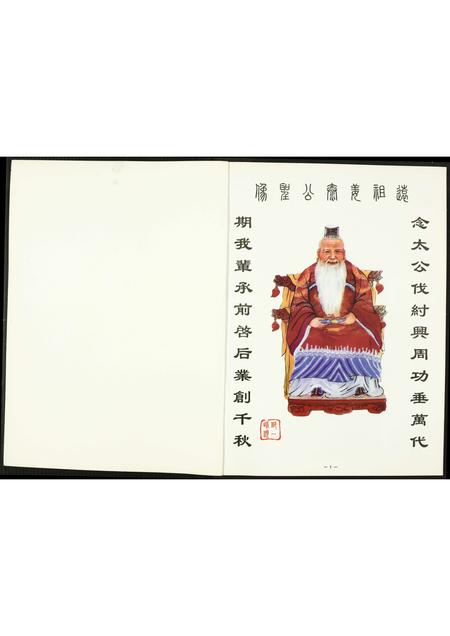 遠祖姜泰公聖像
念太公伐紂興周功垂萬代
期我輩承前啓后業創千秋
－1－